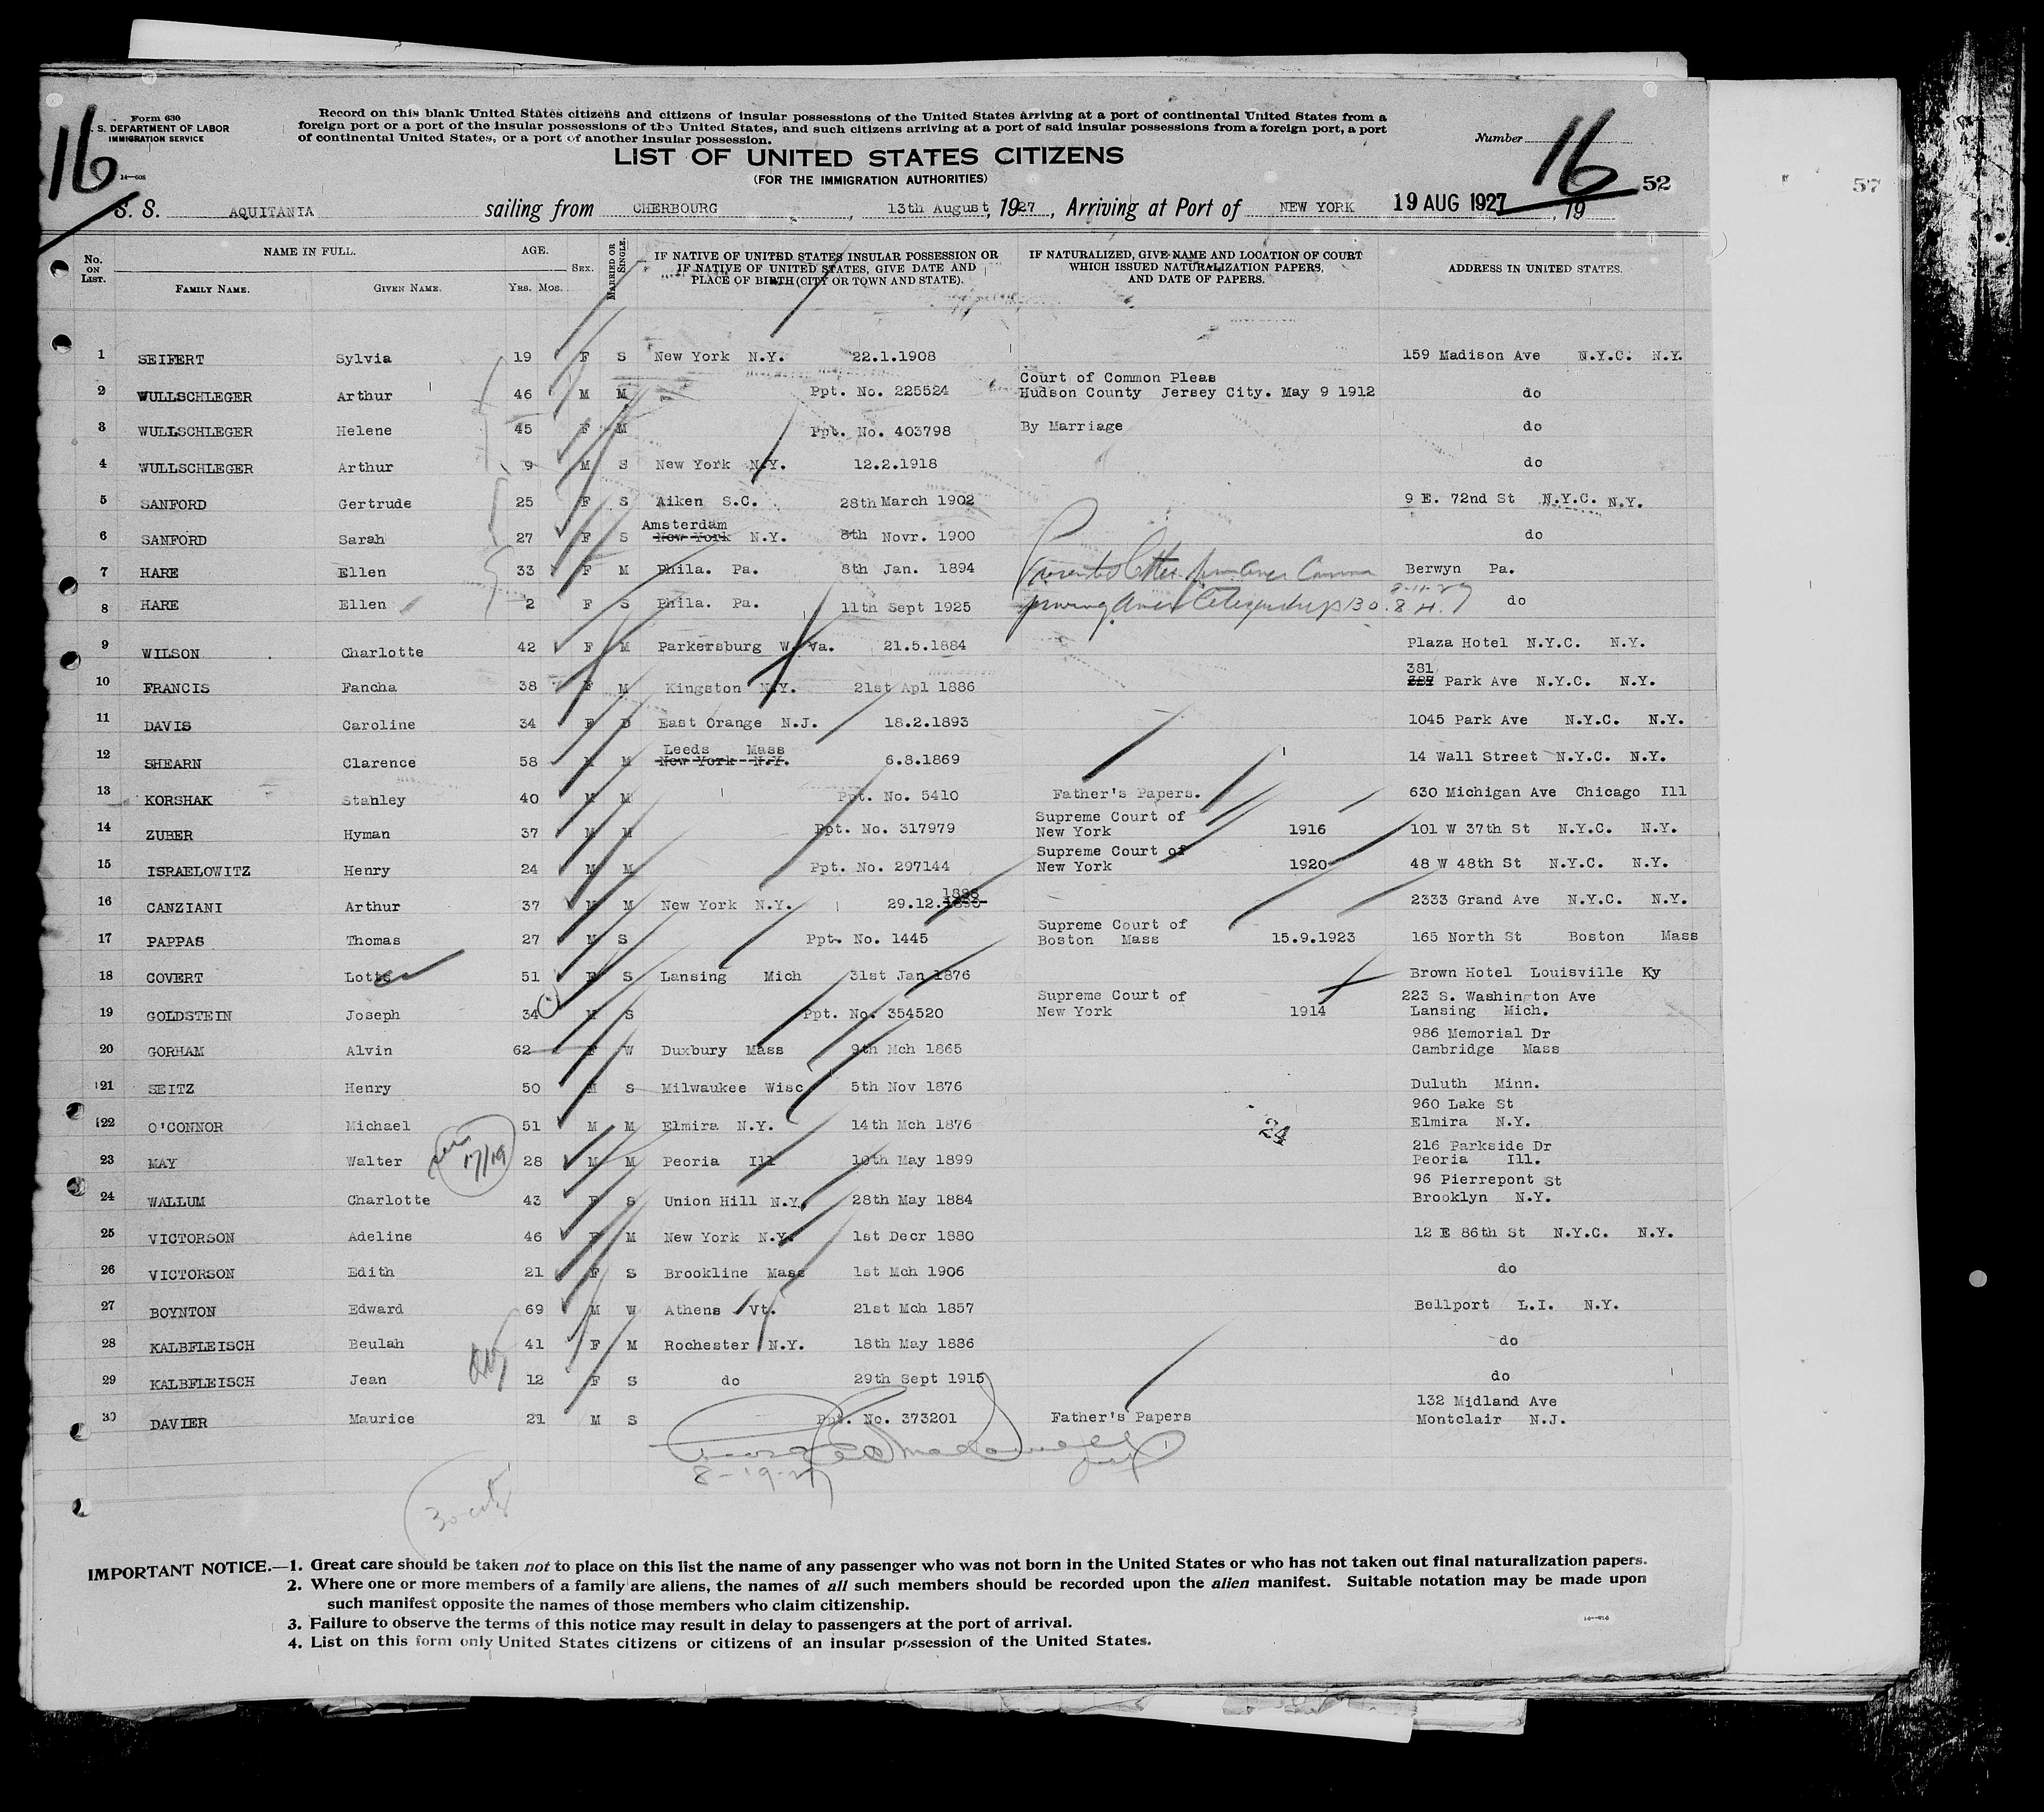 16
Form 630
U. S. DEPARTMENT OF LABOR
IMMIGRATION SERVICE
14—608
Record on this blank United States citizens and citizens of insular possessions of the United States arriving at a port of continental United States from a
foreign port or a port of the insular possessions of the United States, and such citizens arriving at a port of said insular possessions from a foreign port, a port
of continental United States, or a port of another insular possession.
Number 16
52
57
LIST OF UNITED STATES CITIZENS
(FOR THE IMMIGRATION AUTHORITIES)
S. S. AQUITANIA sailing from CHERBOURG, 13th August, 1927, Arriving at Port of NEW YORK 19 AUG 1927, 19
No. ON LIST. NAME IN FULL. FAMILY NAME. GIVEN NAME. AGE. YRS. MOS. SEX. MARRIED OR SINGLE. IF NATIVE OF UNITED STATES INSULAR POSSESSION OR IF NATIVE OF UNITED STATES, GIVE DATE AND PLACE OF BIRTH (CITY OR TOWN AND STATE). IF NATURALIZED, GIVE NAME AND LOCATION OF COURT WHICH ISSUED NATURALIZATION PAPERS, AND DATE OF PAPERS. ADDRESS IN UNITED STATES.
1 SEIFERT Sylvia 19 F S New York N.Y. 22.1.1908 159 Madison Ave N.Y.C. N.Y.
2 WULLSCHLEGER Arthur 46 M M Ppt. No. 225524 Court of Common Pleas Hudson County Jersey City. May 9 1912 do
3 WULLSCHLEGER Helene 45 F M Ppt. No. 403798 By Marriage do
4 WULLSCHLEGER Arthur 9 M S New York N.Y. 12.2.1918 do
5 SANFORD Gertrude 25 F S Aiken S.C. 28th March 1902 9 E. 72nd St N.Y.C. N.Y.
6 SANFORD Sarah 27 F S Amsterdam New York N.Y. 8th Novr. 1900 do
7 HARE Ellen 33 F M Phila. Pa. 8th Jan. 1894 Presented letter from Amer Berwyn Pa.
8 HARE Ellen 2 F S Phila. Pa. 11th Sept 1925 proving Amer Citizenship 8-11-27 do
9 WILSON Charlotte 42 F M Parkersburg W. Va. 21.5.1884 Plaza Hotel N.Y.C. N.Y.
10 FRANCIS Fancha 38 F M Kingston N.Y. 21st Apl 1886 381 Park Ave N.Y.C. N.Y.
11 DAVIS Caroline 34 F D East Orange N.J. 18.2.1893 1045 Park Ave N.Y.C. N.Y.
12 SHEARN Clarence 58 M M Leeds Mass New York N.Y. 6.8.1869 14 Wall Street N.Y.C. N.Y.
13 KORSHAK Stanley 40 M M Ppt. No. 5410 Father's Papers. 630 Michigan Ave Chicago Ill
14 ZUBER Hyman 37 M M Ppt. No. 317979 Supreme Court of New York 1916 101 W 37th St N.Y.C. N.Y.
15 ISRAELOWITZ Henry 24 M M Ppt. No. 297144 Supreme Court of New York 1920 48 W 48th St N.Y.C. N.Y.
16 CANZIANI Arthur 37 M M New York N.Y. 29.12.1890 1888 2333 Grand Ave N.Y.C. N.Y.
17 PAPPAS Thomas 27 M S Ppt. No. 1445 Supreme Court of Boston Mass 15.9.1923 165 North St Boston Mass
18 COVERT Lotta 51 F S Lansing Mich 31st Jan 1876 Brown Hotel Louisville Ky
19 GOLDSTEIN Joseph 34 M S Ppt. No. 354520 Supreme Court of New York 1914 223 S. Washington Ave Lansing Mich.
20 GORHAM Alvin 62 F W Duxbury Mass 9th Mch 1865 986 Memorial Dr Cambridge Mass
21 SEITZ Henry 50 M S Milwaukee Wisc 5th Nov 1876 Duluth Minn.
22 O'CONNOR Michael 51 M M Elmira N.Y. 14th Mch 1876 24 960 Lake St Elmira N.Y.
23 MAY Walter 17/19 28 M M Peoria Ill 10th May 1899 216 Parkside Dr Peoria Ill.
24 WALLUM Charlotte 43 F S Union Hill N.Y. 28th May 1884 96 Pierrepont St Brooklyn N.Y.
25 VICTORSON Adeline 46 F M New York N.Y. 1st Decr 1880 12 E 86th St N.Y.C. N.Y.
26 VICTORSON Edith 21 F S Brookline Mass 1st Mch 1906 do
27 BOYNTON Edward 69 M W Athens Vt. 21st Mch 1857 Bellport L.I. N.Y.
28 KALBFLEISCH Beulah 41 F M Rochester N.Y. 18th May 1886 do
29 KALBFLEISCH Jean 12 F S do 29th Sept 1915 do
30 DAVIER Maurice 21 M S Ppt. No. 373201 Father's Papers 132 Midland Ave Montclair N.J.
8-19-27
IMPORTANT NOTICE.—1. Great care should be taken not to place on this list the name of any passenger who was not born in the United States or who has not taken out final naturalization papers.
2. Where one or more members of a family are aliens, the names of all such members should be recorded upon the alien manifest. Suitable notation may be made upon
such manifest opposite the names of those members who claim citizenship.
3. Failure to observe the terms of this notice may result in delay to passengers at the port of arrival.
4. List on this form only United States citizens or citizens of an insular possession of the United States.